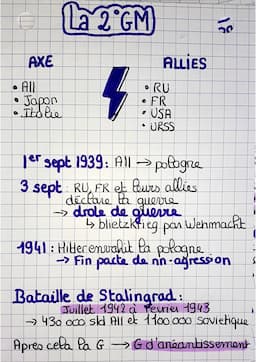 La 2° GM
AXE
ALLIÉS
• All
• Japon
• Italie
• RU
• FR
• USA
• URSS
1er sept 1939: All → pologne
3 sept: RU, FR et leurs alliés
déclare la guerre
→ drole de guerre
↳ blietzkrieg par Wehrmacht
1941: Hitler envahit la pologne
→ Fin pacte de nn-agression
Bataille de Stalingrad:
Juillet 1942 à février 1943
→ 430 000 sld All et 1 100 000 soviétique
Après cela la G → G d'anéantissement